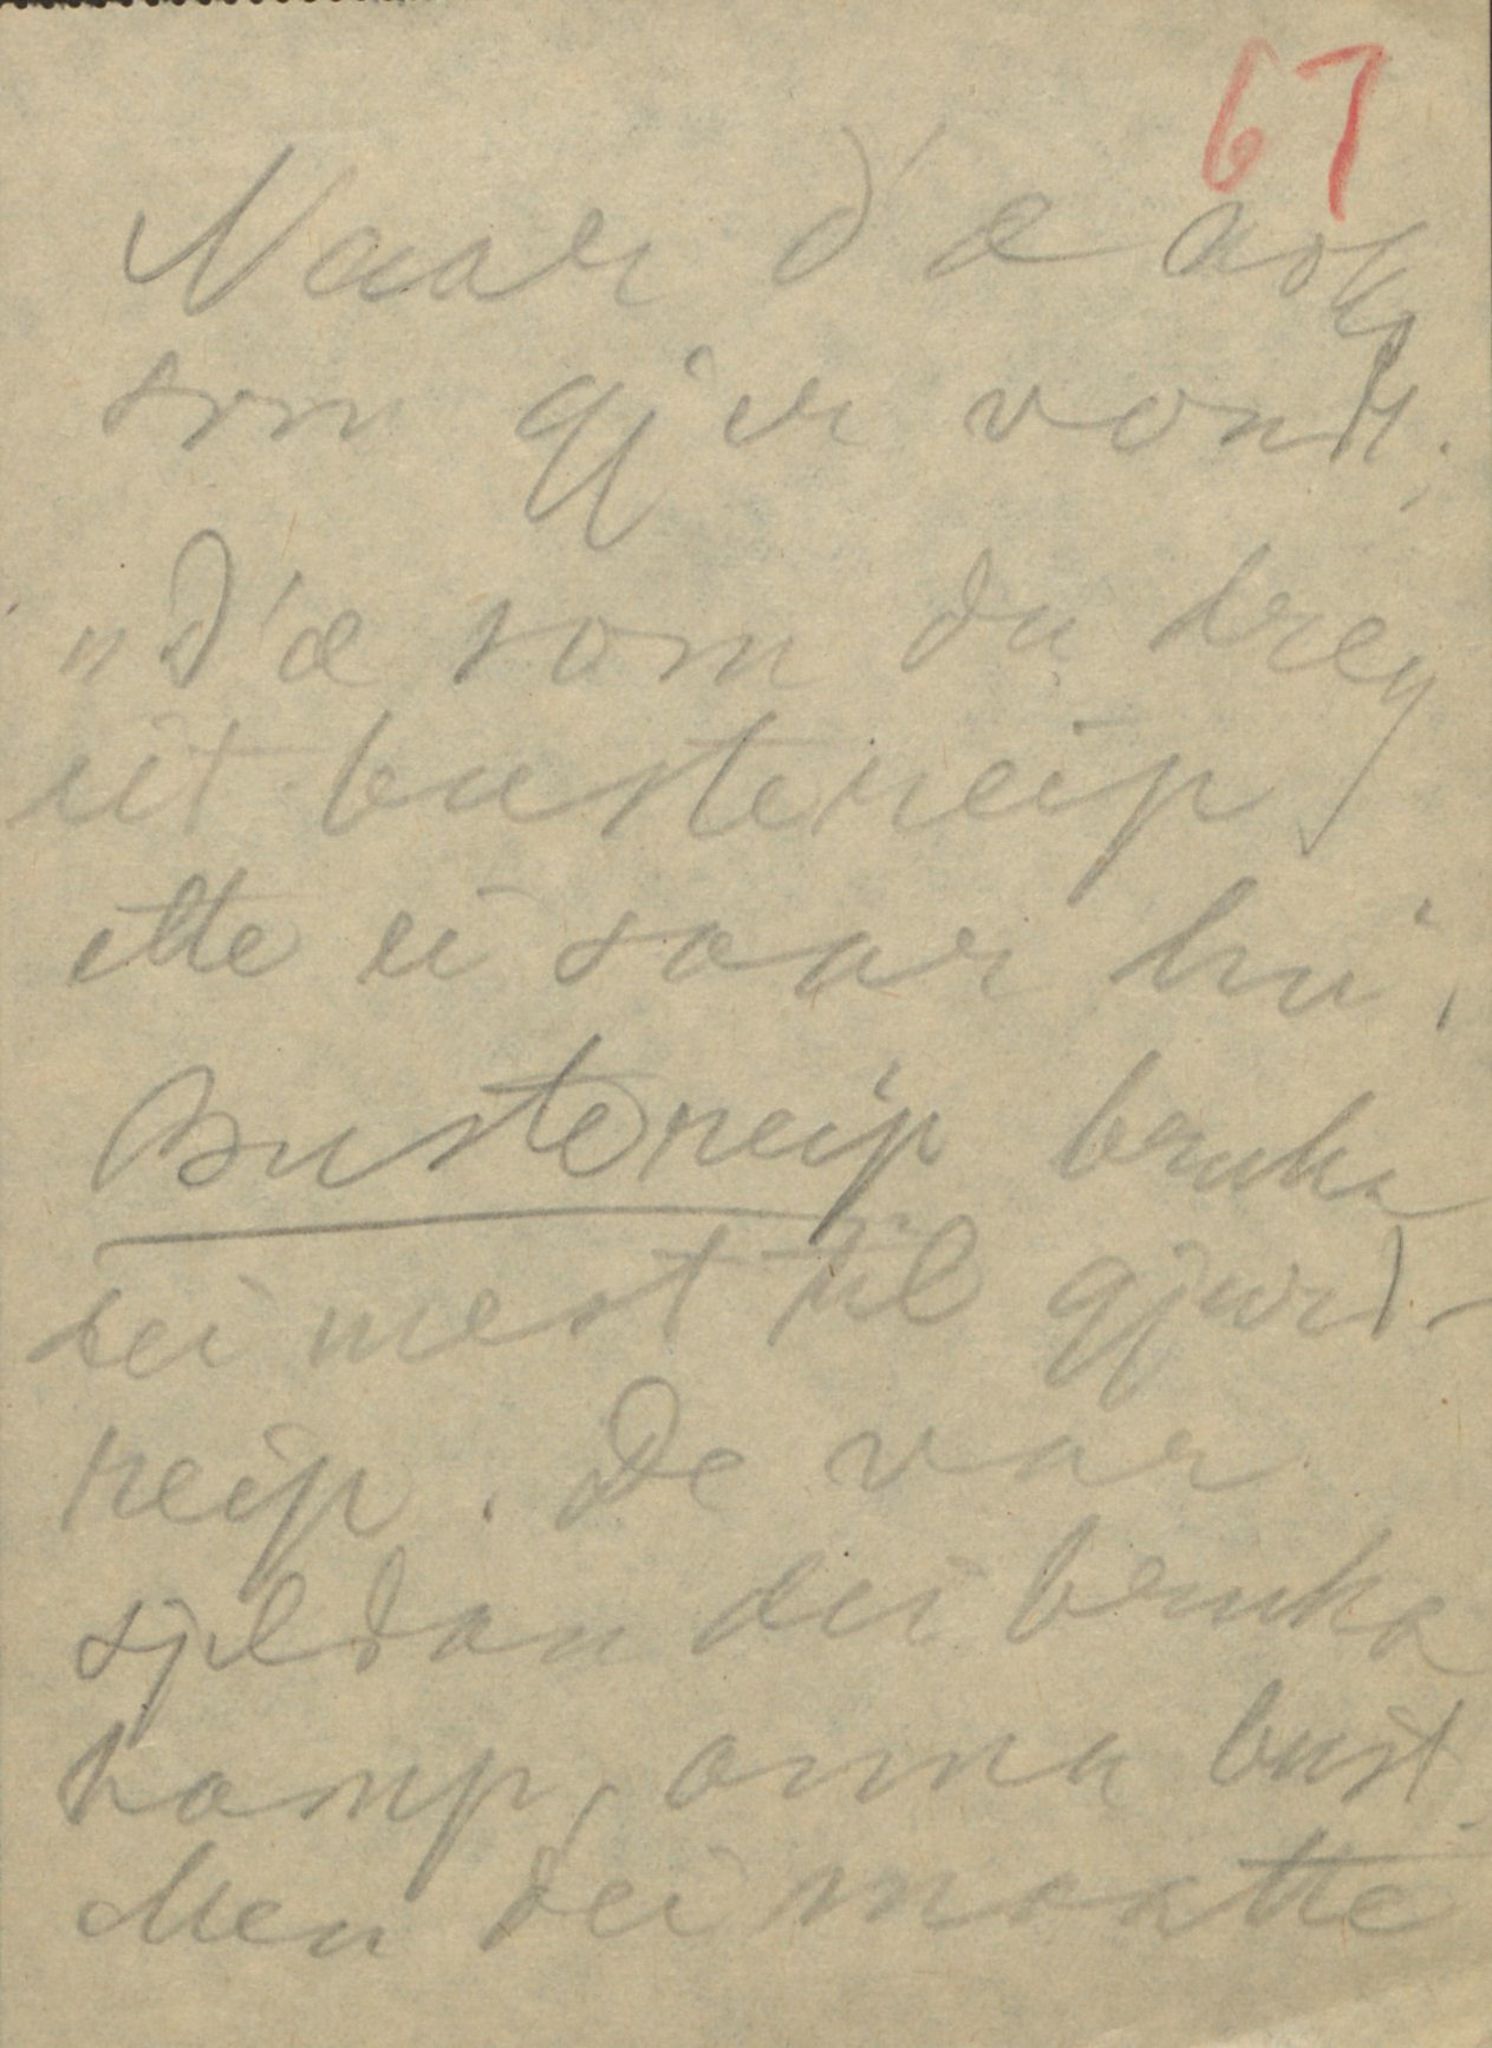 67
Naar d'æ noko
som gjer vondt.
"D'æ som du dreg
eit bustereip
ette ei saar hu'.
Bustereip bruka
dei mest til gjurd-
reip. De var
sjeldan dei bruka
hamp, onna bust.
Men dei maatte